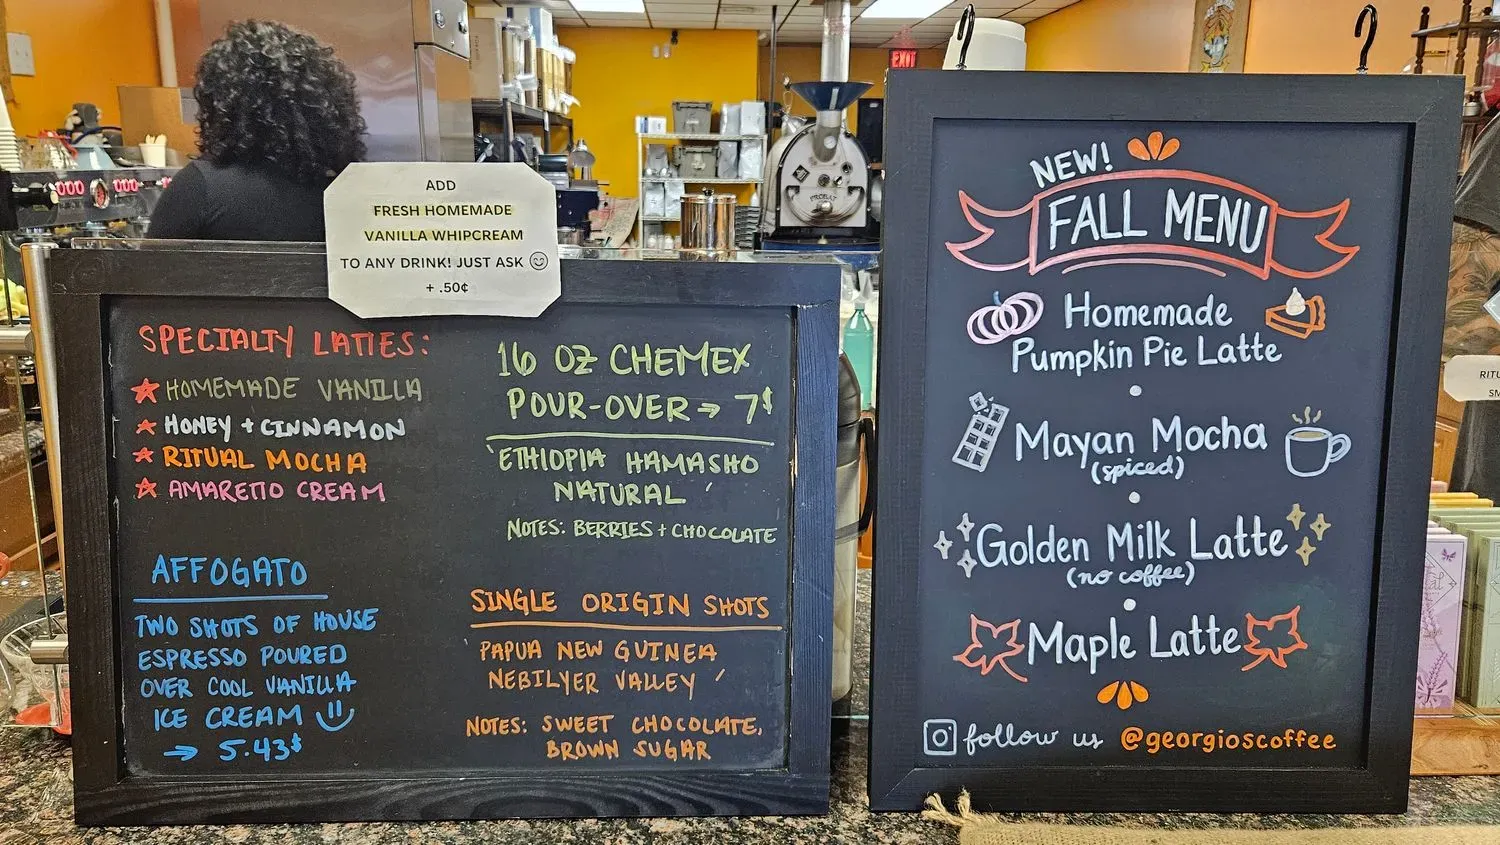 ADD
FRESH HOMEMADE
VANILLA WHIPCREAM
TO ANY DRINK! JUST ASK
+ .50¢
SPECIALTY LATTES:
HOMEMADE VANILLA
HONEY + CINNAMON
RITUAL MOCHA
AMARETTO CREAM
AFFOGATO
TWO SHOTS OF HOUSE
ESPRESSO POURED
OVER COOL VANILLA
ICE CREAM
→ 5.43$
16 OZ CHEMEX
POUR-OVER → 7$
'ETHIOPIA HAMASHO
NATURAL'
NOTES: BERRIES + CHOCOLATE
SINGLE ORIGIN SHOTS
'PAPUA NEW GUINEA
NEBILYER VALLEY'
NOTES: SWEET CHOCOLATE,
BROWN SUGAR
NEW!
FALL MENU
Homemade
Pumpkin Pie Latte
Mayan Mocha
(spiced)
Golden Milk Latte
(no coffee)
Maple Latte
follow us @georgioscoffee
EXIT
PROBAT